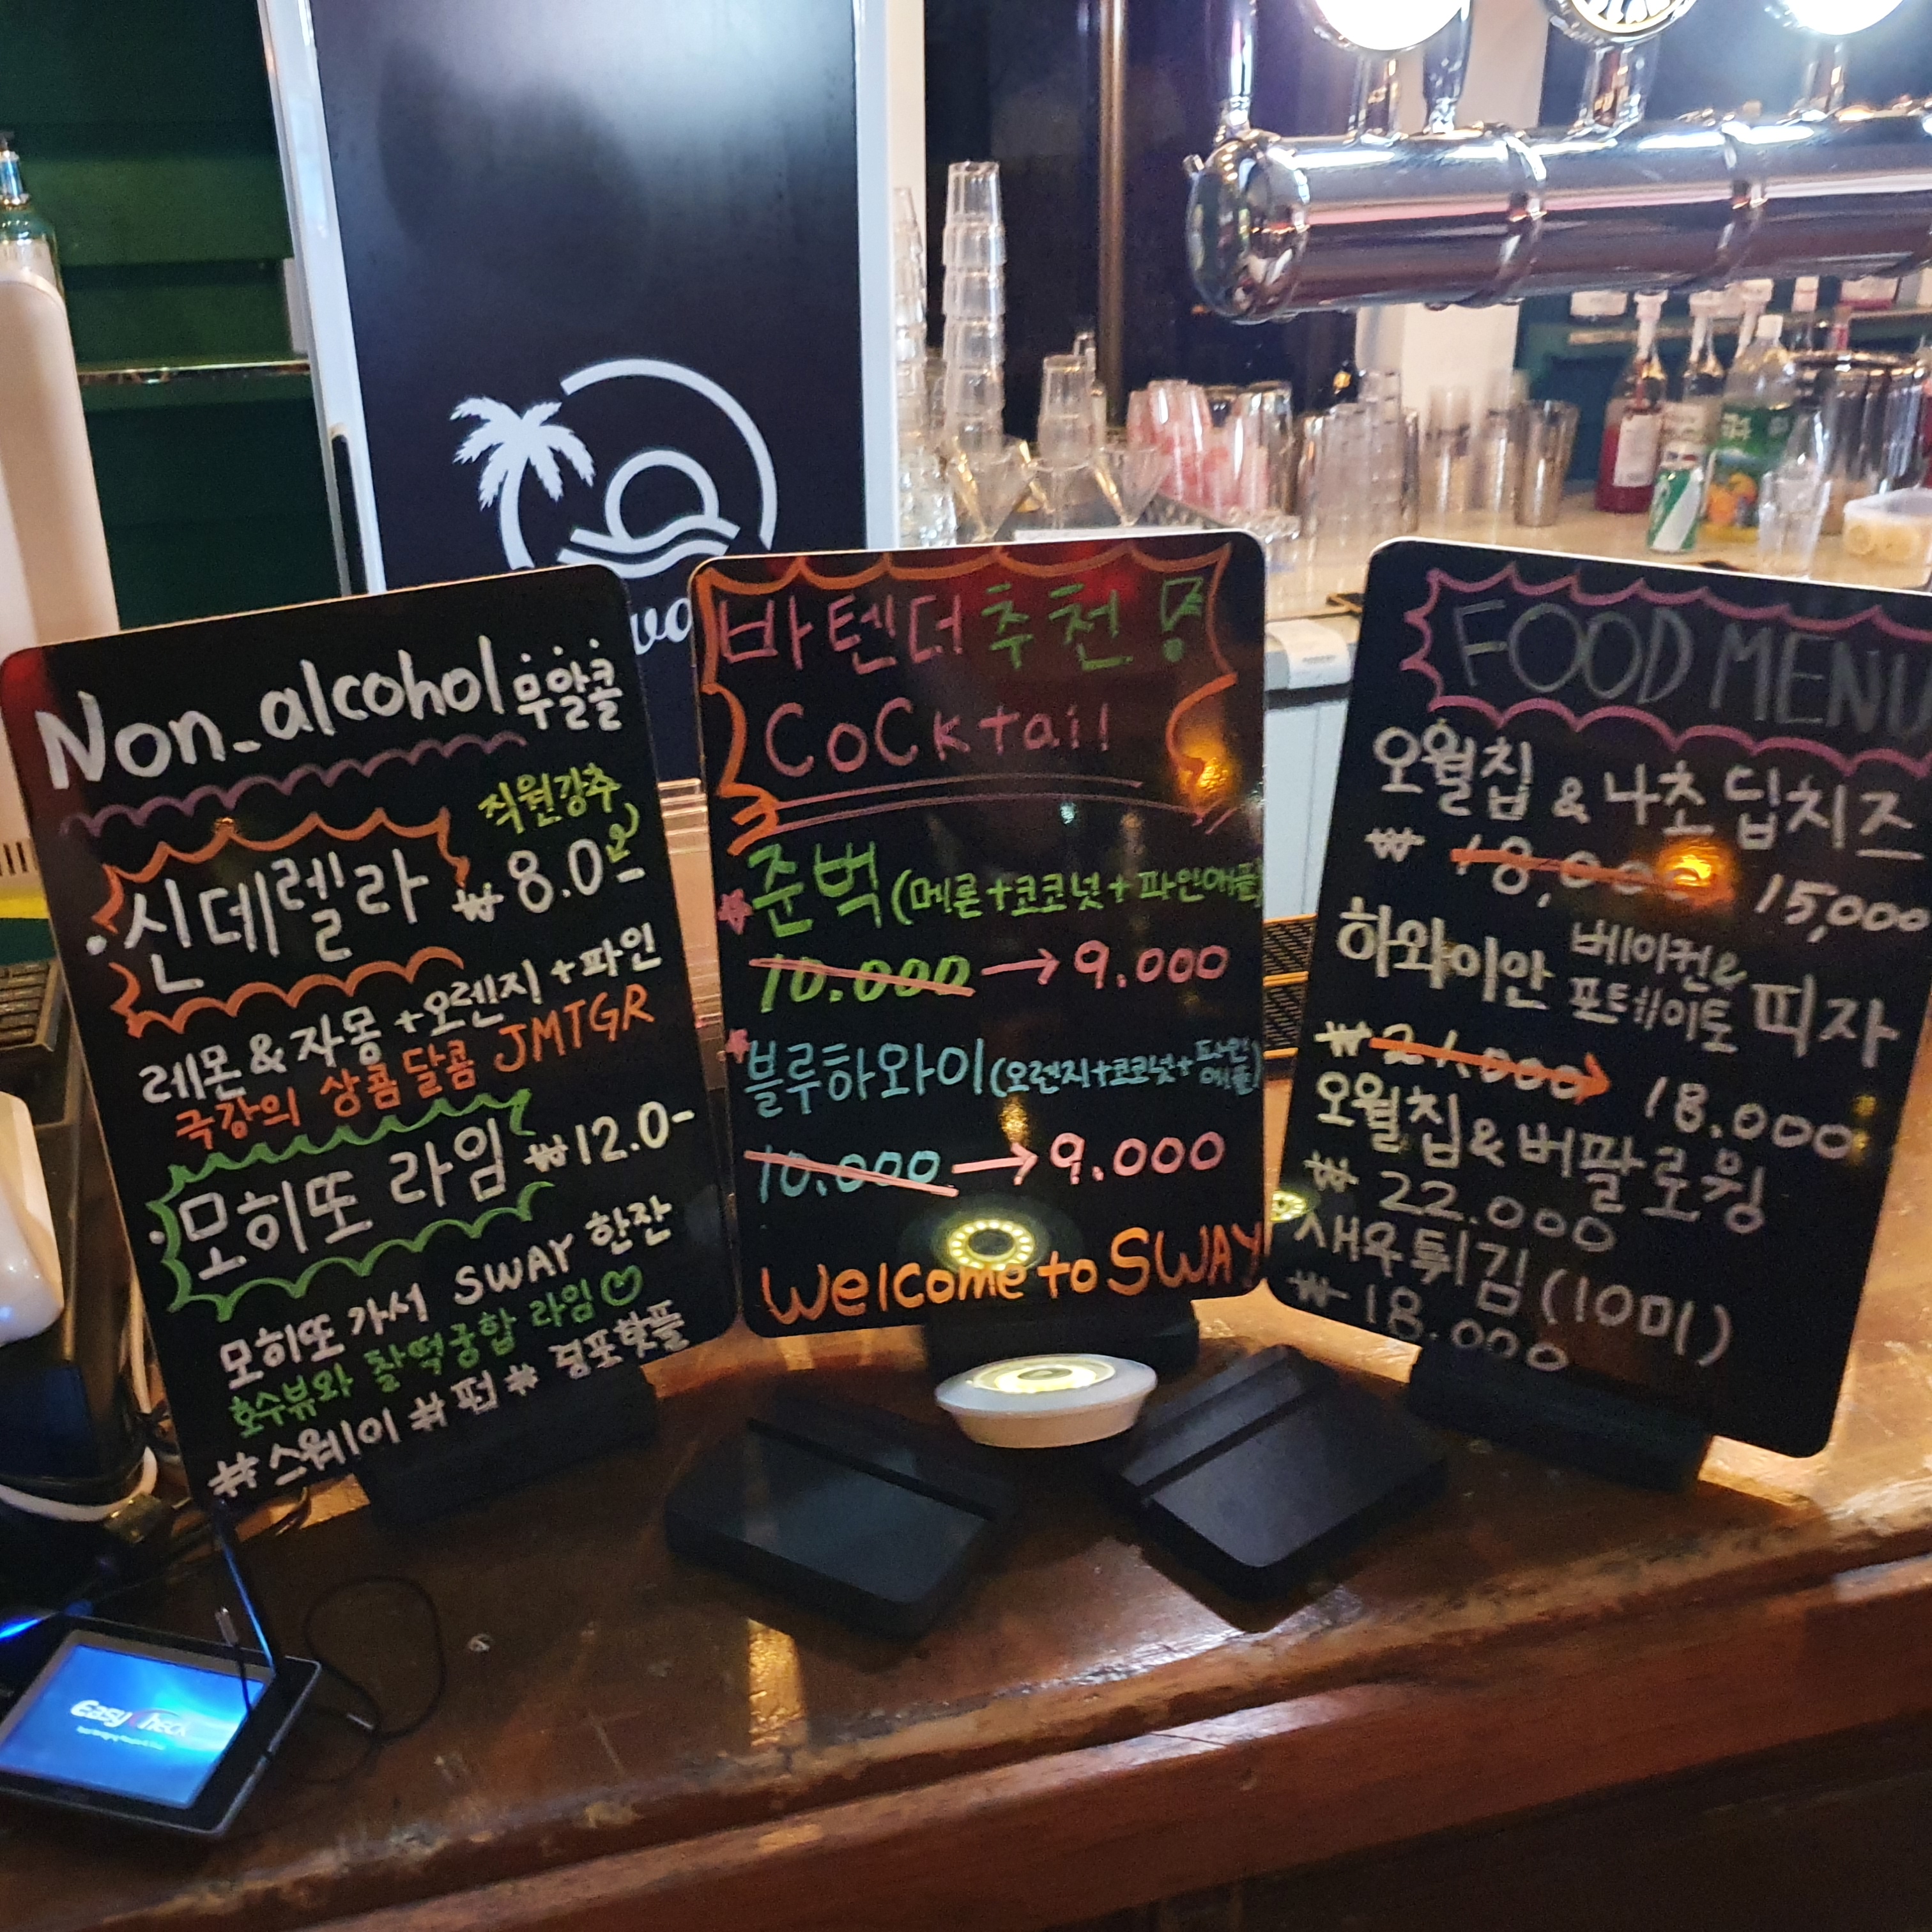 Non_alcohol 무알콜
직원강추
신데렐라 ₩8.0-
레몬&자몽+오렌지+파인
극강의 상콤달콤 JMTGR
모히또 라임 ₩12.0-
모히또 가서 SWAY 한잔
호수뷰와 찰떡궁합 라임♡
#스웨이#펍#경포핫플
바텐더 추천
Cocktail
준벅(메론+코코넛+파인애플)
10.000→9.000
블루하와이(오렌지+코코넛+파인애플)
10.000→9.000
Welcome to SWAY
FOOD MENU
오월칩 & 나초 딥치즈
₩ 18,000 15,000
하와이안 베이컨& 포트헤이토 피자
₩21.000→ 18.000
오월칩&버팔로윙
₩ 22.000
새우튀김(10미)
₩18.000
Easy Check